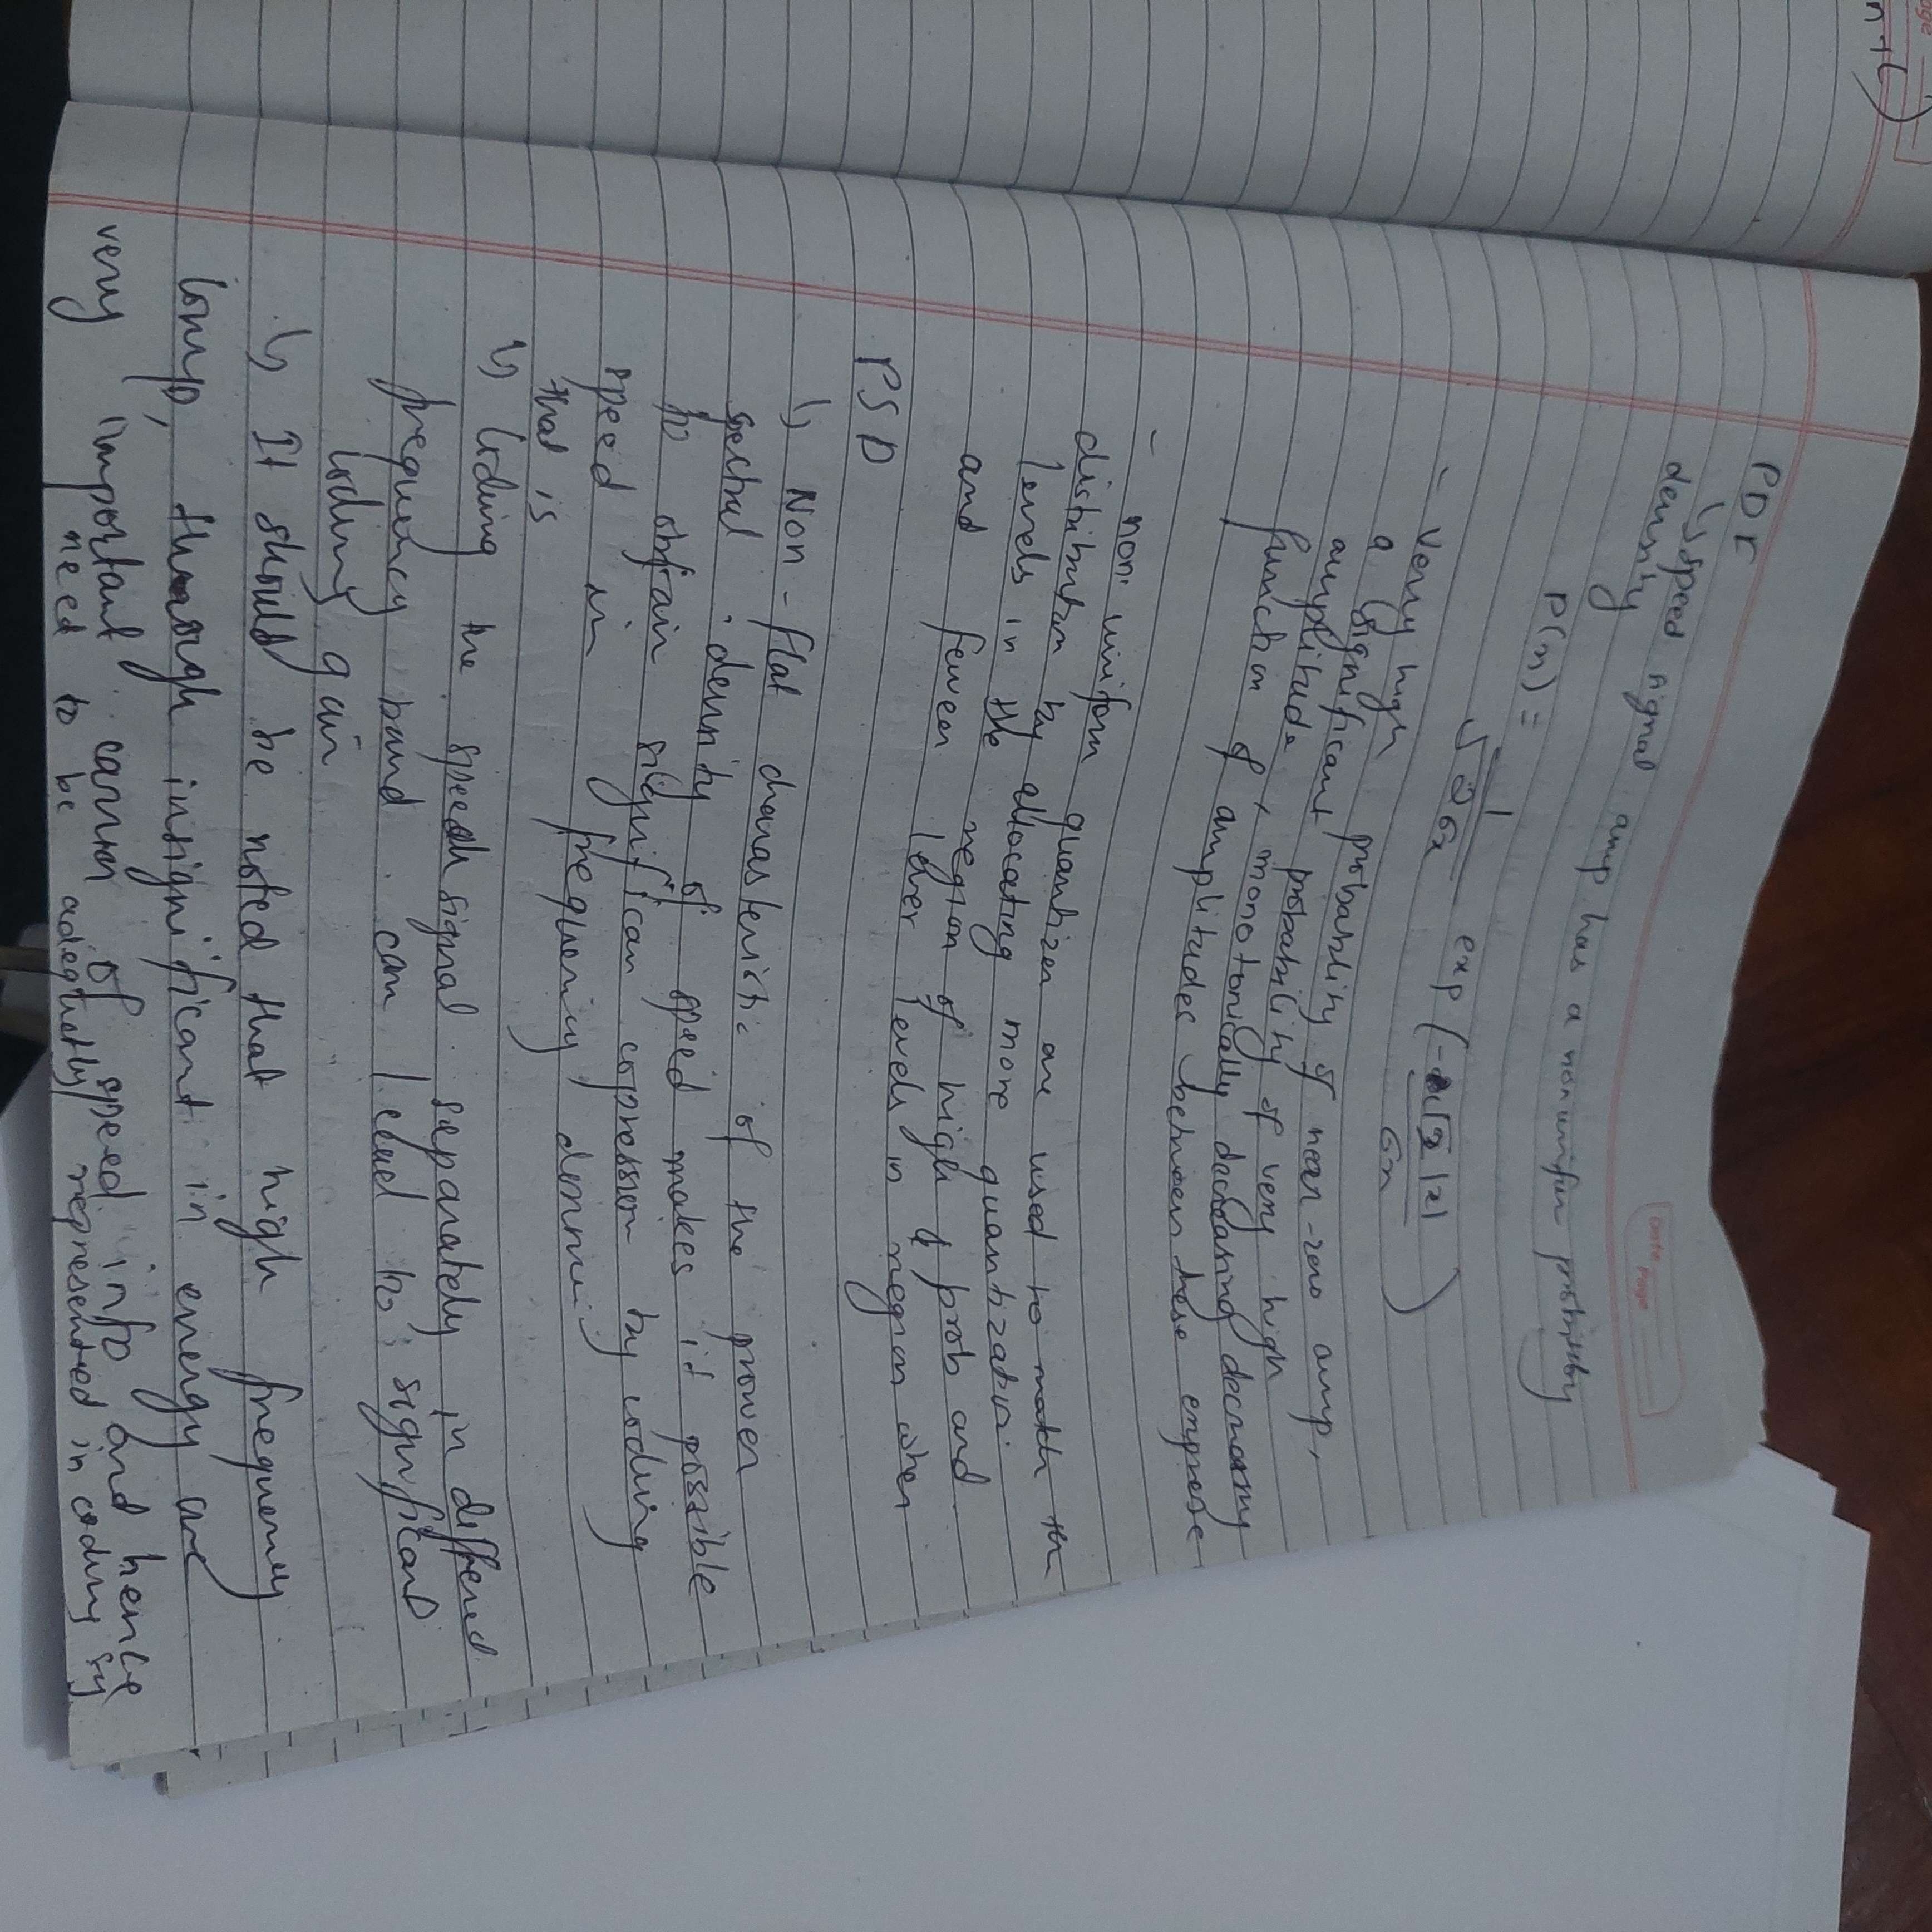 Page
n+l)
Date
Page
PDF
↳ speed signal amp has a nonunifur probility
density
P(n) = 1/√2σx exp(-√2|x|/σn)
- Verry high probability of near-zero amp,
a significant probability of very high
amplitude, monotonically decreasing decreasing
function of amplitudes between these
- non uniform quantizer are used to match the
distribution by allocating more quantization.
levels in the region of high prob and
and fewer lever levels in region when
PSD
↳ Non-flat characteristic of the prower
spectral density of speed makes it possible
to obtain significan copression by coding
speed in frequency
that is
↳ Coding the speech signal separately in different
frequency band can lead to significant
coding gain
↳ It should be noted that high frequency
comp, through insignificant in energy are
very important carrier of speed info and hence
need to be adequately represented in coding sy